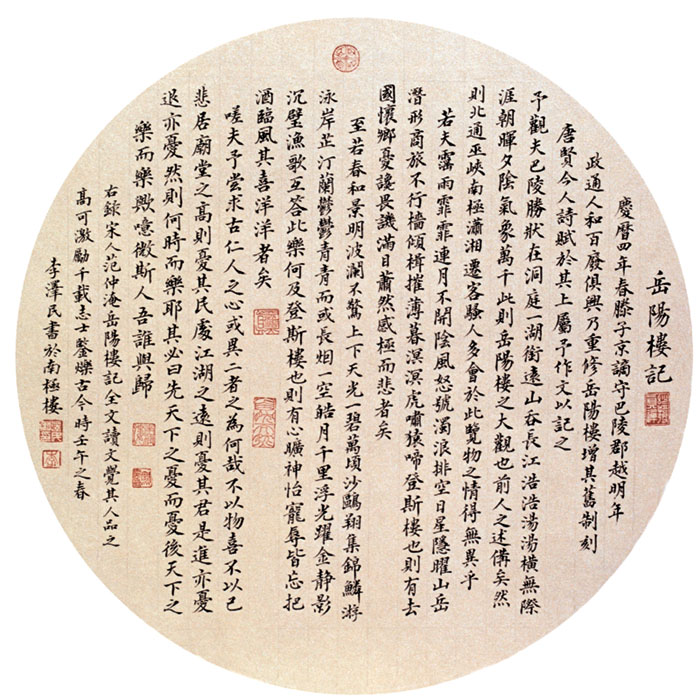 岳陽樓記
慶曆四年春滕子京謫守巴陵郡越明年
政通人和百廢俱興乃重修岳陽樓增其舊制刻
唐賢今人詩賦於其上屬予作文以記之
予觀夫巴陵勝狀在洞庭一湖銜遠山吞長江浩浩湯湯橫無際
涯朝暉夕陰氣象萬千此則岳陽樓之大觀也前人之述備矣然
則北通巫峽南極瀟湘遷客騷人多會於此覽物之情得無異乎
若夫霪雨霏霏連月不開陰風怒號濁浪排空日星隱曜山岳
潛形商旅不行檣傾楫摧薄暮溟溟虎嘯猿啼登斯樓也則有去
國懷鄉憂讒畏譏滿目蕭然感極而悲者矣
至若春和景明波瀾不驚上下天光一碧萬頃沙鷗翔集錦鱗游
泳岸芷汀蘭鬱鬱青青而或長烟一空皓月千里浮光躍金靜影
沉璧漁歌互答此樂何及登斯樓也則有心曠神怡寵辱皆忘把
酒臨風其喜洋洋者矣
嗟夫予嘗求古仁人之心或異二者之為何哉不以物喜不以己
悲居廟堂之高則憂其民處江湖之遠則憂其君是進亦憂
退亦憂然則何時而樂耶其必曰先天下之憂而憂後天下之
樂而樂歟噫微斯人吾誰與歸
右錄宋人范仲淹岳陽樓記全文讀文覺其人品之
高可激勵千載志士鑒爍古今時壬午之春
李澤民書於南極樓